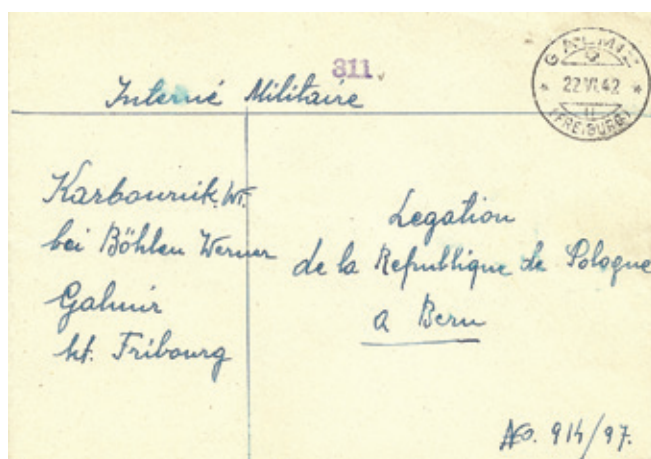 311.
Interné Militaire
GALMIZ
22.VI.42
(FREIBURG)
Karbownik. Wł.
bei Böhlen Werner
Galmiz
kt. Fribourg
Legation
de la Republique de Pologne
a Bern
No. 914/97.